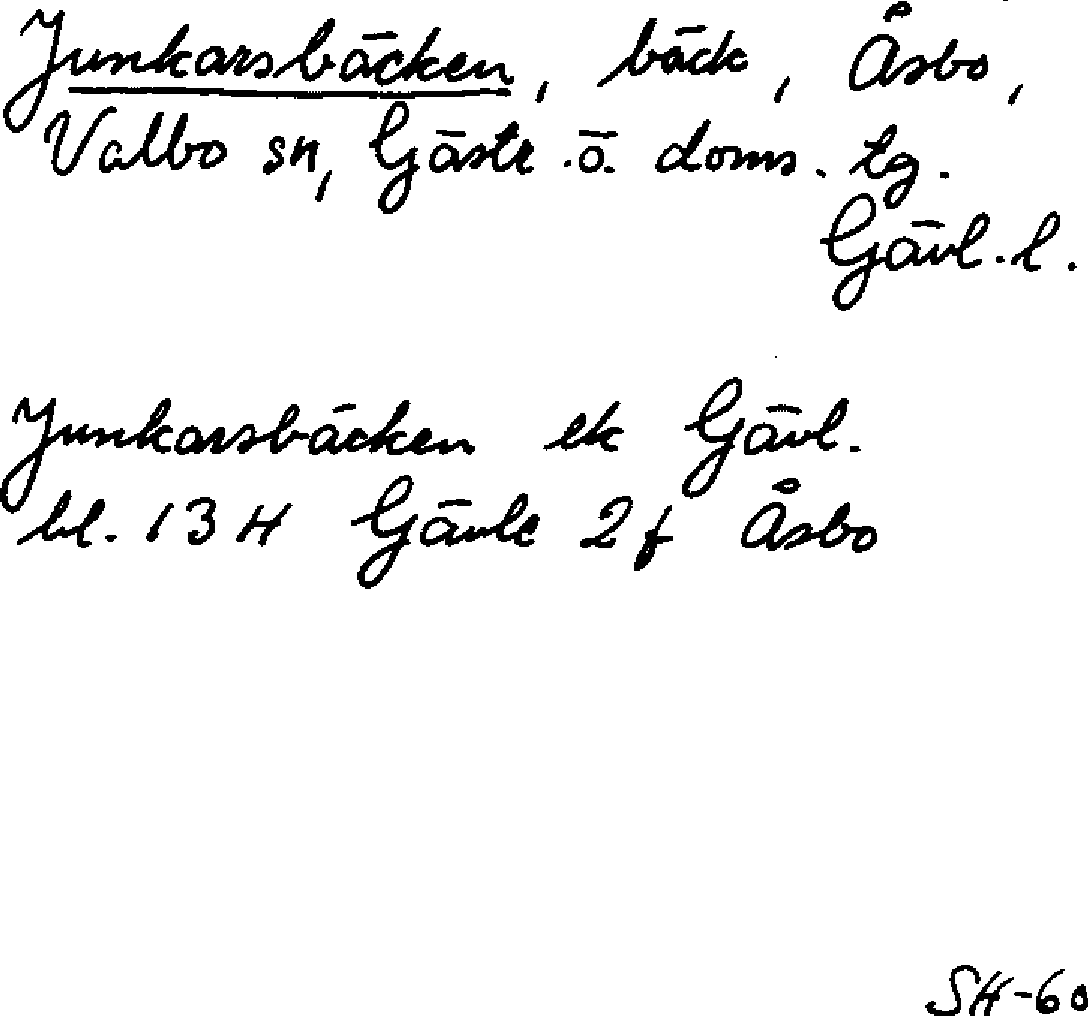 Junkarsbäcken, bäck, Åsbo,
Valbo sn, Gästr. ö. doms. tg.
Gävl. l.
Junkarsbäcken ek Gävl.
bl. 13 H Gävle 2 f Åsbo
SH-60